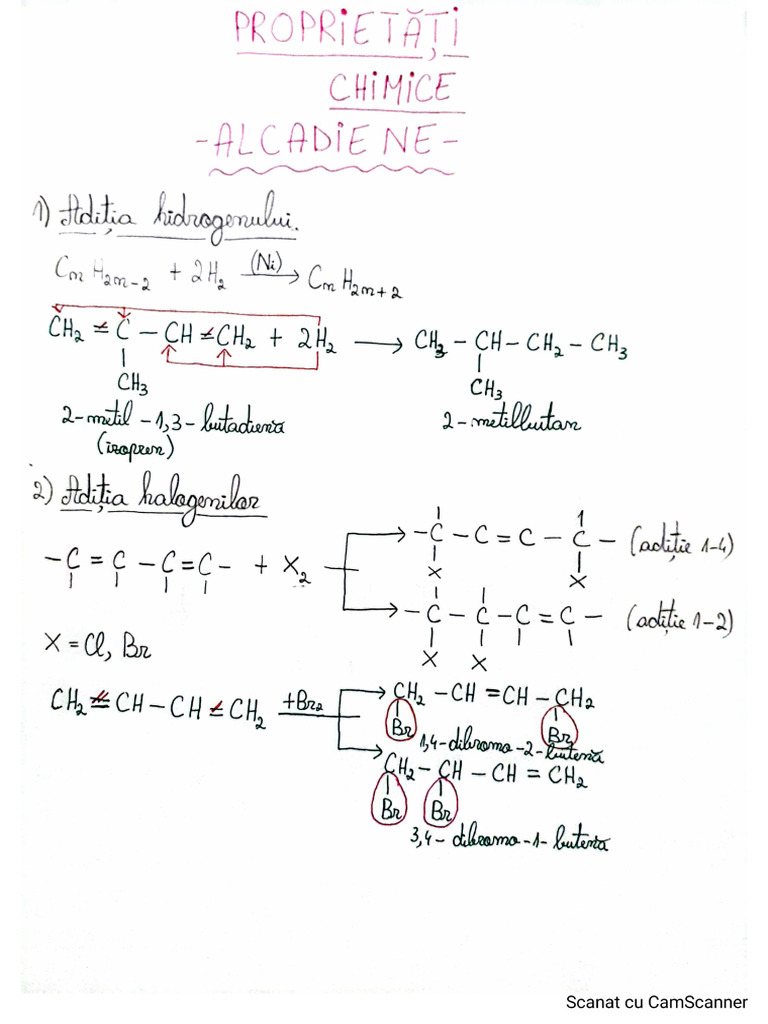 PROPRIETĂȚI
CHIMICE
-ALCADIENE-
1) Adiția hidrogenului.
CnH2n-2 + 2H2 (Ni)→ CnH2n+2
CH2 = C – CH = CH2 + 2H2 → CH3 – CH – CH2 – CH3
CH3 CH3
2-metil-1,3-butadienă 2-metilbutan
(izopren)
2) Adiția halogenilor
–C – C = C – C – (adiție 1-4)
X X
–C = C – C = C– + X2
–C – C – C = C – (adiție 1-2)
X X
X = Cl, Br
CH2 = CH – CH = CH2 +Br2 → CH2 – CH = CH – CH2
Br Br
1,4-dibromo-2-butenă
CH2 – CH – CH = CH2
Br Br
3,4-dibromo-1-butenă
Scanat cu CamScanner